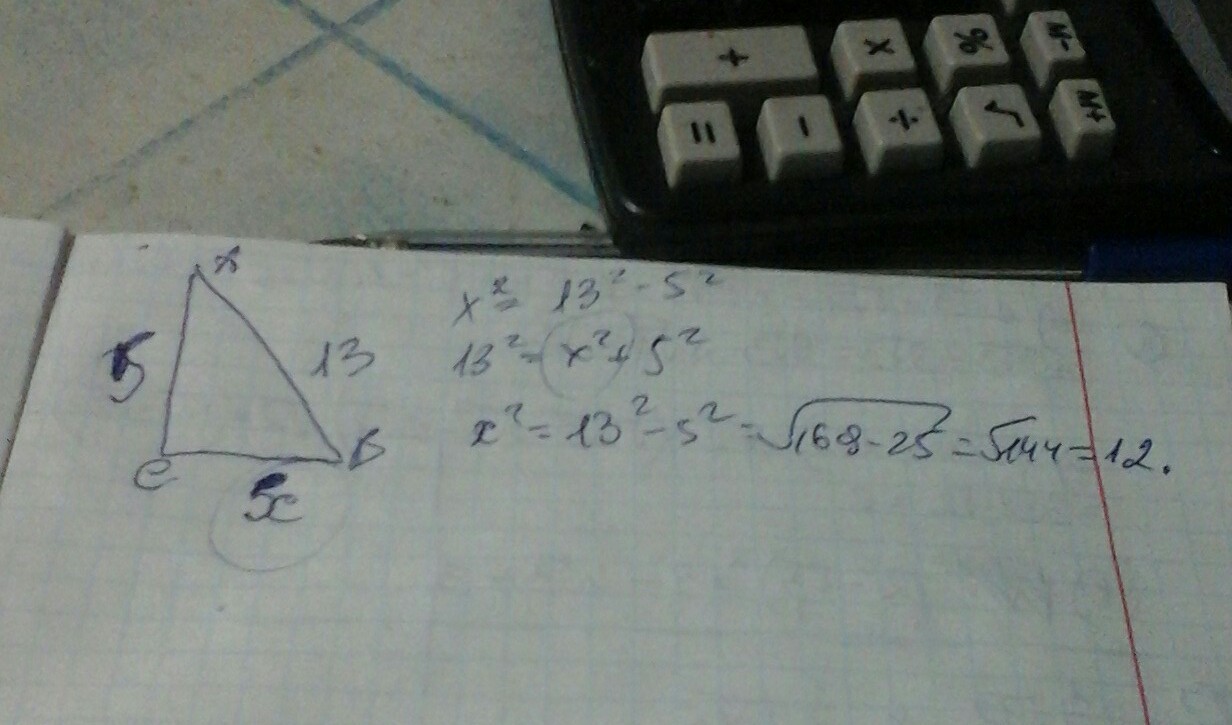 + × % M-
= - ÷ √ M+
A
5 13
C B
x
x² = 13² - 5²
13² = x² + 5²
x² = 13² - 5² = √169-25 = √144 = 12.